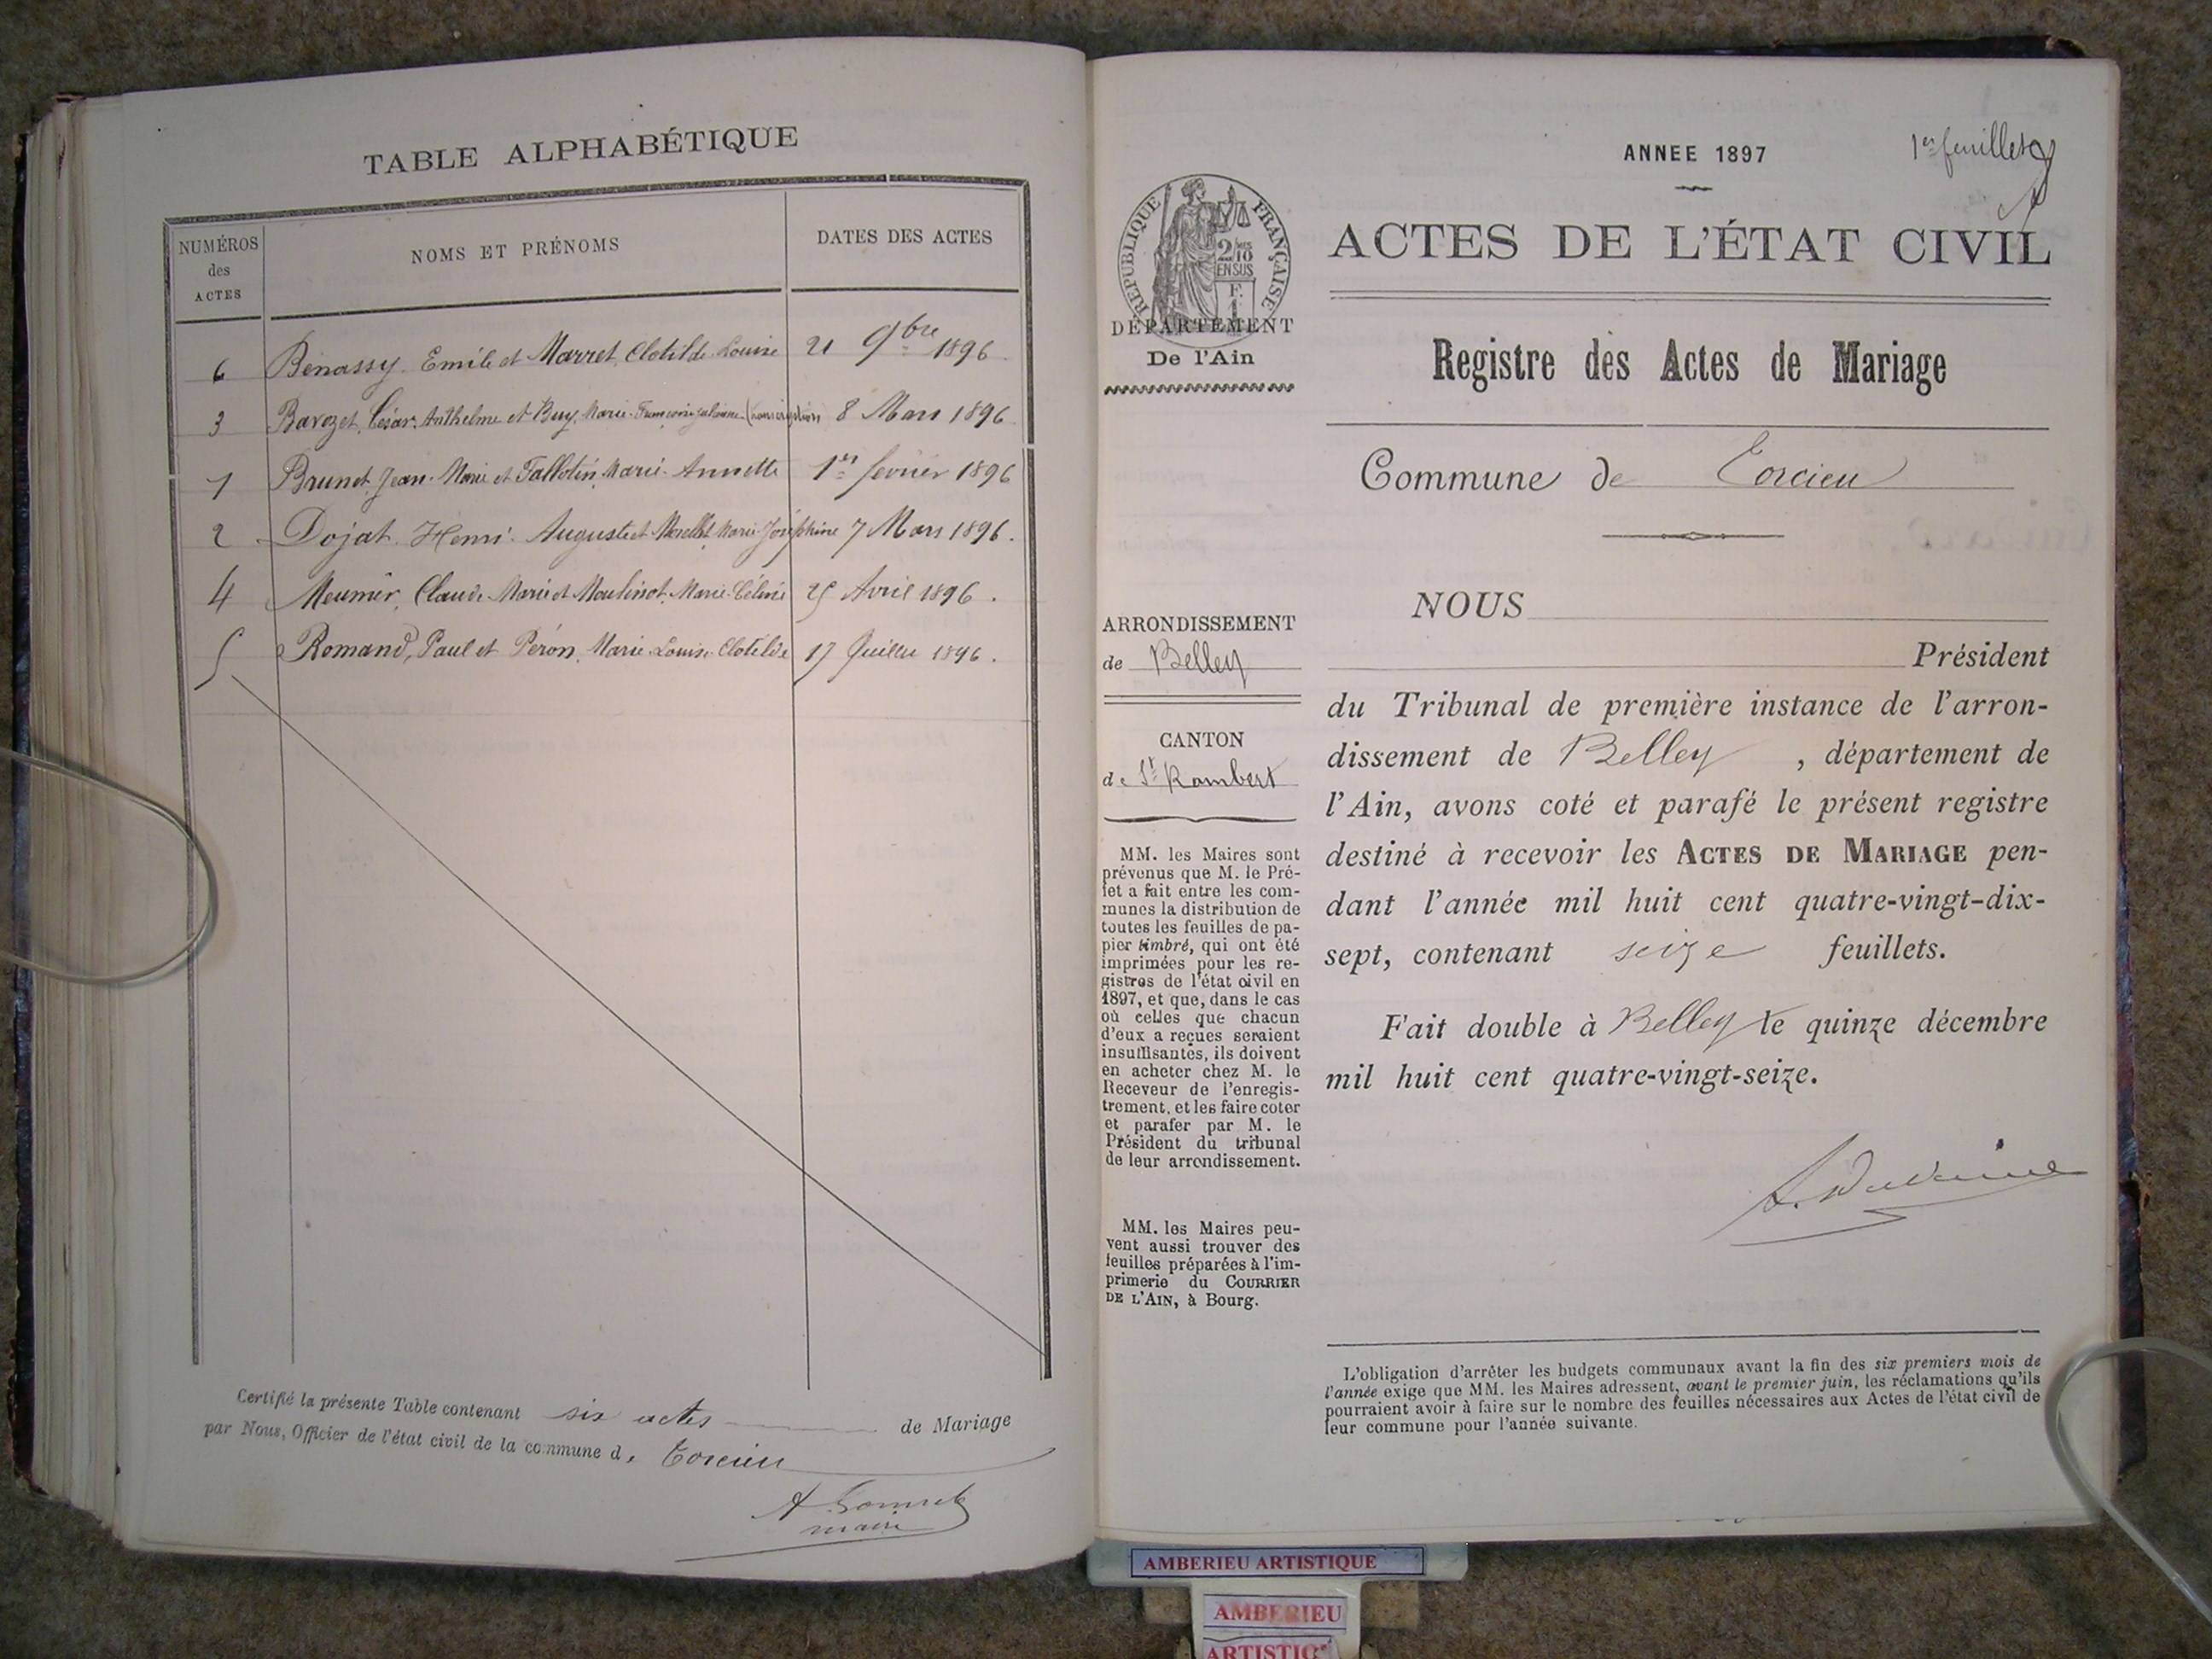 TABLE ALPHABÉTIQUE
NUMÉROS
des
ACTES
NOMS ET PRÉNOMS
DATES DES ACTES
6 Bénassy Emile et Marret Clotilde Louise 21 9bre 1896
3 Bavozet, César Anthelme et Buy, Marie Françoise Julienne (transcription) 8 Mars 1896
1 Brunet Jean-Marie et Tallotin Marie-Annette 1er fevrier 1896
2 Dojat Henri Auguste et Morellet Marie Joséphine 7 Mars 1896.
4 Meunier, Claude Marie et Moulinot Marie Céline 25 Avril 1896.
5 Romand, Paul et Péron, Marie Louise Clotilde 17 Juillet 1896.
Certifié la présente Table contenant six actes de Mariage
par Nous, Officier de l'état civil de la commune d, Torcieu
maire
ANNEE 1897
1er feuillet
ACTES DE L'ÉTAT CIVIL
RÉPUBLIQUE FRANÇAISE
2/10
EN SUS
F.
1
DÉPARTEMENT
De l'Ain
Registre des Actes de Mariage
Commune de Torcieu
ARRONDISSEMENT
de Belley
CANTON
de St Rambert
MM. les Maires sont
prévenus que M. le Pré-
fet a fait entre les com-
munes la distribution de
toutes les feuilles de pa-
pier timbré, qui ont été
imprimées pour les re-
gistres de l'état civil en
1897, et que, dans le cas
où celles que chacun
d'eux a reçues seraient
insuffisantes, ils doivent
en acheter chez M. le
Receveur de l'enregis-
trement, et les faire coter
et parafer par M. le
Président du tribunal
de leur arrondissement.
MM. les Maires peu-
vent aussi trouver des
feuilles préparées à l'im-
primerie du COURRIER
DE L'AIN, à Bourg.
NOUS
Président
du Tribunal de première instance de l'arron-
dissement de Belley , département de
l'Ain, avons coté et parafé le présent registre
destiné à recevoir les ACTES DE MARIAGE pen-
dant l'année mil huit cent quatre-vingt-dix-
sept, contenant seize feuillets.
Fait double à Belley le quinze décembre
mil huit cent quatre-vingt-seize.
L'obligation d'arrêter les budgets communaux avant la fin des six premiers mois de
l'année exige que MM. les Maires adressent, avant le premier juin, les réclamations qu'ils
pourraient avoir à faire sur le nombre des feuilles nécessaires aux Actes de l'état civil de
leur commune pour l'année suivante.
AMBERIEU ARTISTIQUE
AMBERIEU
ARTISTIQ